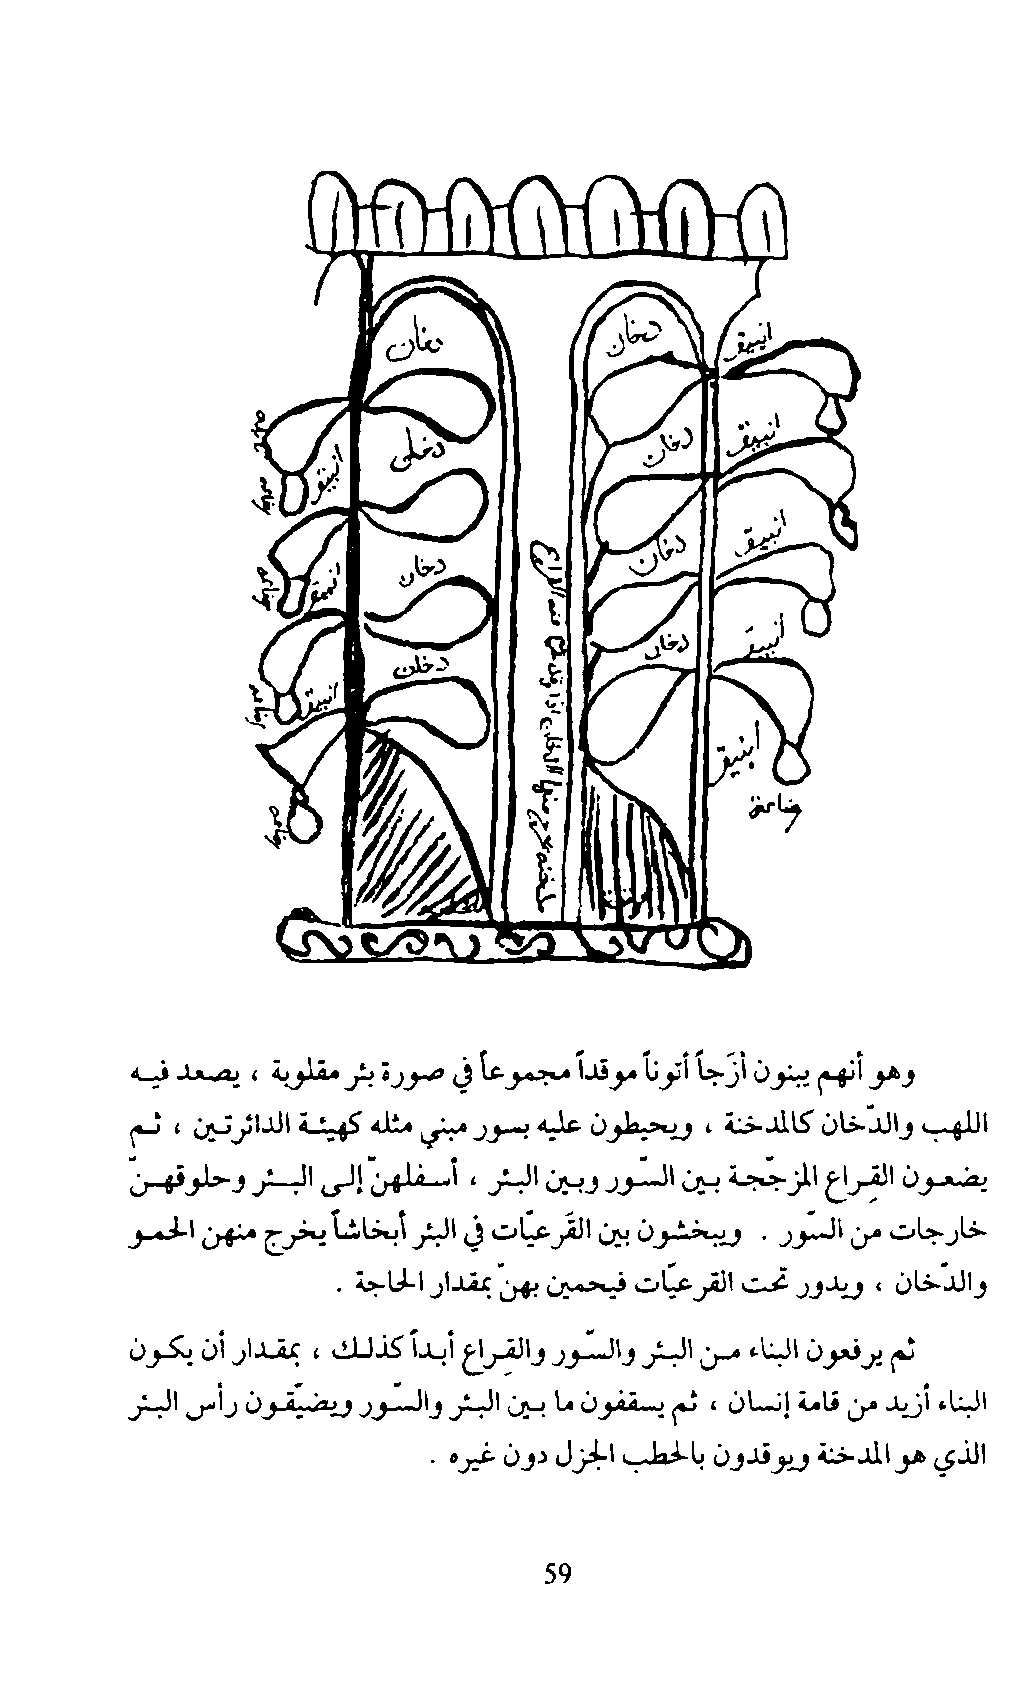 دخان
دخان
انبيق
دخان
انبيق
دخلى
انبيق
انبيق
دخان
دخان
انبيق
انبيق
دخان
دخلن
انبيق
ابنيق
وهو أنهم يبنون أزَجاً أتوناً موقداً مجموعاً في صورة بئر مقلوبة ، يصعد فيه
اللهب والدّخان كالمدخنة ، ويحيطون عليه بسور مبني مثله كهيئة الدائرتين ، ثم
يضعون القِراع المزجّجة بين السّور وبين البئر ، أسفلهنّ إلى البئر وحلوقهنّ
خارجات من السّور . ويبخشون بين القَرعيّات في البئر أبخاشاً يخرج منهن الحمو
والدّخان ، ويدور تحت القرعيّات فيحمين بهنّ بمقدار الحاجة .
ثم يرفعون البناء من البئر والسّور والقِراع أبداً كذلك ، بمقدار أن يكون
البناء أزيد من قامة إنسان ، ثم يسقفون ما بين البئر والسّور ويضيّقون رأس البئر
الذي هو المدخنة ويوقدون بالحطب الجزل دون غيره .
59